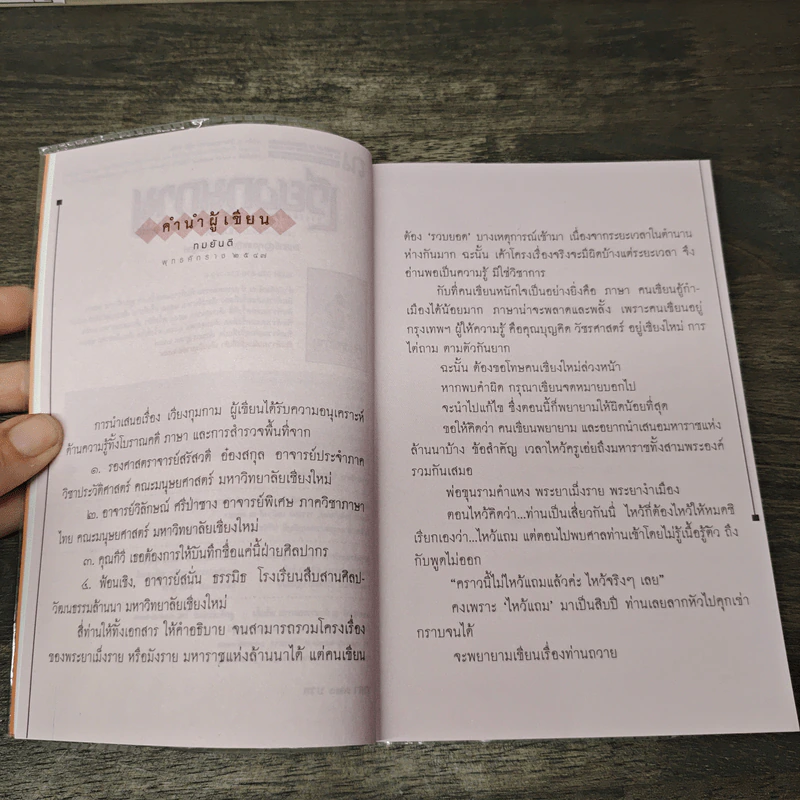 คำนำผู้เขียน
ทมยันตี
พุทธศักราช ๒๕๔๗
การนำเสนอเรื่อง เวียงกุมกาม ผู้เขียนได้รับความอนุเคราะห์
ด้านความรู้ทั้งโบราณคดี ภาษา และการสำรวจพื้นที่จาก
๑. รองศาสตราจารย์สรัสวดี อ๋องสกุล อาจารย์ประจำภาค
วิชาประวัติศาสตร์ คณะมนุษยศาสตร์ มหาวิทยาลัยเชียงใหม่
๒. อาจารย์วิลักษณ์ ศรีป่าซาง อาจารย์พิเศษ ภาควิชาภาษา
ไทย คณะมนุษยศาสตร์ มหาวิทยาลัยเชียงใหม่
๓. คุณกีวี เธอต้องการให้บันทึกชื่อแค่นี้ฝ่ายศิลปากร
๔. ฟ้อนเชิง, อาจารย์สนั่น ธรรมธิ โรงเรียนสืบสานศิลป-
วัฒนธรรมล้านนา มหาวิทยาลัยเชียงใหม่
สี่ท่านให้ทั้งเอกสาร ให้คำอธิบาย จนสามารถรวมโครงเรื่อง
ของพระยาเม็งราย หรือมังราย มหาราชแห่งล้านนาได้ แต่คนเขียน
ต้อง ‘รวบยอด’ บางเหตุการณ์เข้ามา เนื่องจากระยะเวลาในตำนาน
ห่างกันมาก ฉะนั้น เค้าโครงเรื่องจริงจะมีผิดบ้างแต่ระยะเวลา จึง
อ่านพอเป็นความรู้ มิใช่วิชาการ
กับที่คนเขียนหนักใจเป็นอย่างยิ่งคือ ภาษา คนเขียนอู้กำ-
เมืองได้น้อยมาก ภาษาน่าจะพลาดและพลั้ง เพราะคนเขียนอยู่
กรุงเทพฯ ผู้ให้ความรู้ คือคุณบุญคิด วัชรศาสตร์ อยู่เชียงใหม่ การ
ไต่ถาม ตามตัวกันยาก
ฉะนั้น ต้องขอโทษคนเชียงใหม่ล่วงหน้า
หากพบคำผิด กรุณาเขียนจดหมายบอกไป
จะนำไปแก้ไข ซึ่งตอนนี้ก็พยายามให้ผิดน้อยที่สุด
ขอให้คิดว่า คนเขียนพยายาม และอยากนำเสนอมหาราชแห่ง
ล้านนาบ้าง ข้อสำคัญ เวลาไหว้ครูเอ่ยถึงมหาราชทั้งสามพระองค์
รวมกันเสมอ
พ่อขุนรามคำแหง พระยาเม็งราย พระยางำเมือง
ตอนไหว้คิดว่า...ท่านเป็นเสี่ยวกันนี่ ไหว้ก็ต้องไหว้ให้หมดซิ
เรียกเองว่า...ไหว้แถม แต่ตอนไปพบศาลท่านเข้าโดยไม่รู้เนื้อรู้ตัว ถึง
กับพูดไม่ออก
“คราวนี้ไม่ไหว้แถมแล้วค่ะ ไหว้จริงๆ เลย”
คงเพราะ ‘ไหว้แถม’ มาเป็นสิบปี ท่านเลยลากหัวไปคุกเข่า
กราบจนได้
จะพยายามเขียนเรื่องท่านถวาย